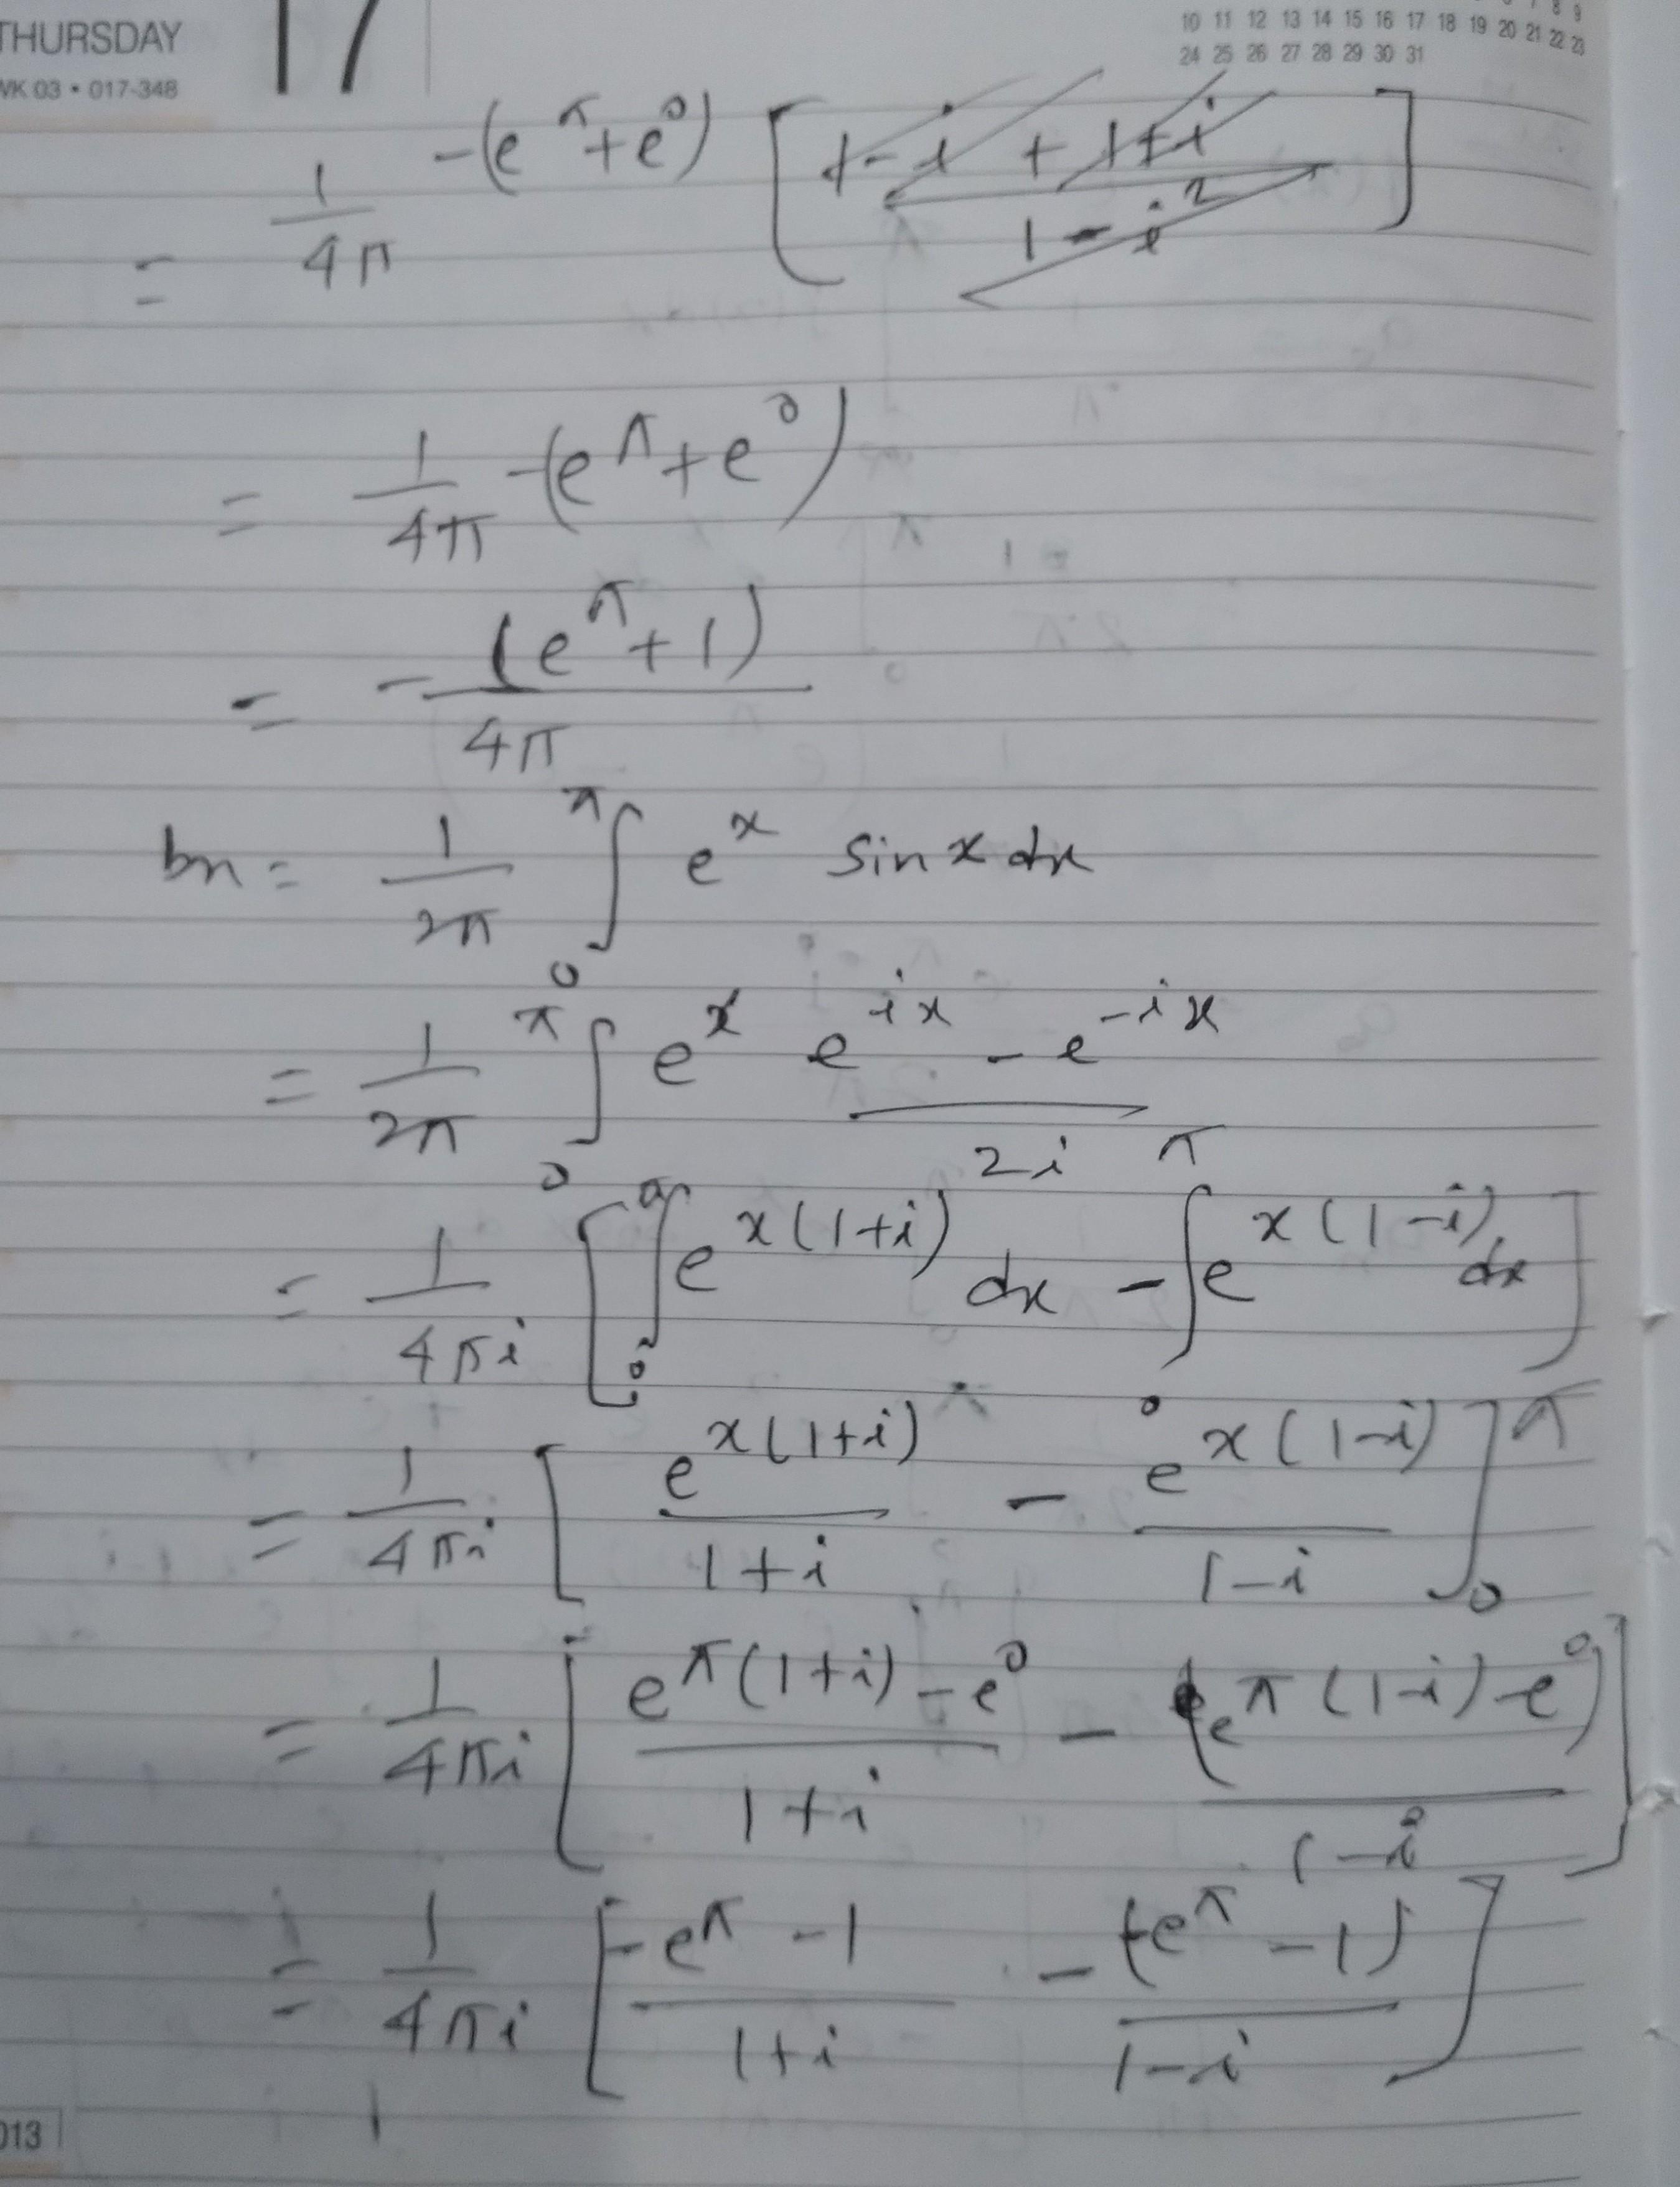 THURSDAY 17
WK 03 • 017-348
10 11 12 13 14 15 16 17 18 19 20 21 22 23
24 25 26 27 28 29 30 31
= 1/4π -(e^π+e^0) [(1-i + 1+i)/(1-i^2)]
= 1/4π -(e^π+e^0)
= -(e^π+1)/4π
bn = 1/2π ∫_0^π e^x sin x dx
= 1/2π ∫_0^π e^x (e^ix - e^-ix)/2i
= 1/4πi [∫_0^π e^x(1+i) dx - ∫_0^π e^x(1-i) dx]
= 1/4πi [e^x(1+i)/(1+i) - e^x(1-i)/(1-i)]_0^π
= 1/4πi [(e^π(1+i) - e^0)/(1+i) - (e^π(1-i) - e^0)/(1-i)]
= 1/4πi [(-e^π - 1)/(1+i) - (-e^π - 1)/(1-i)]
013